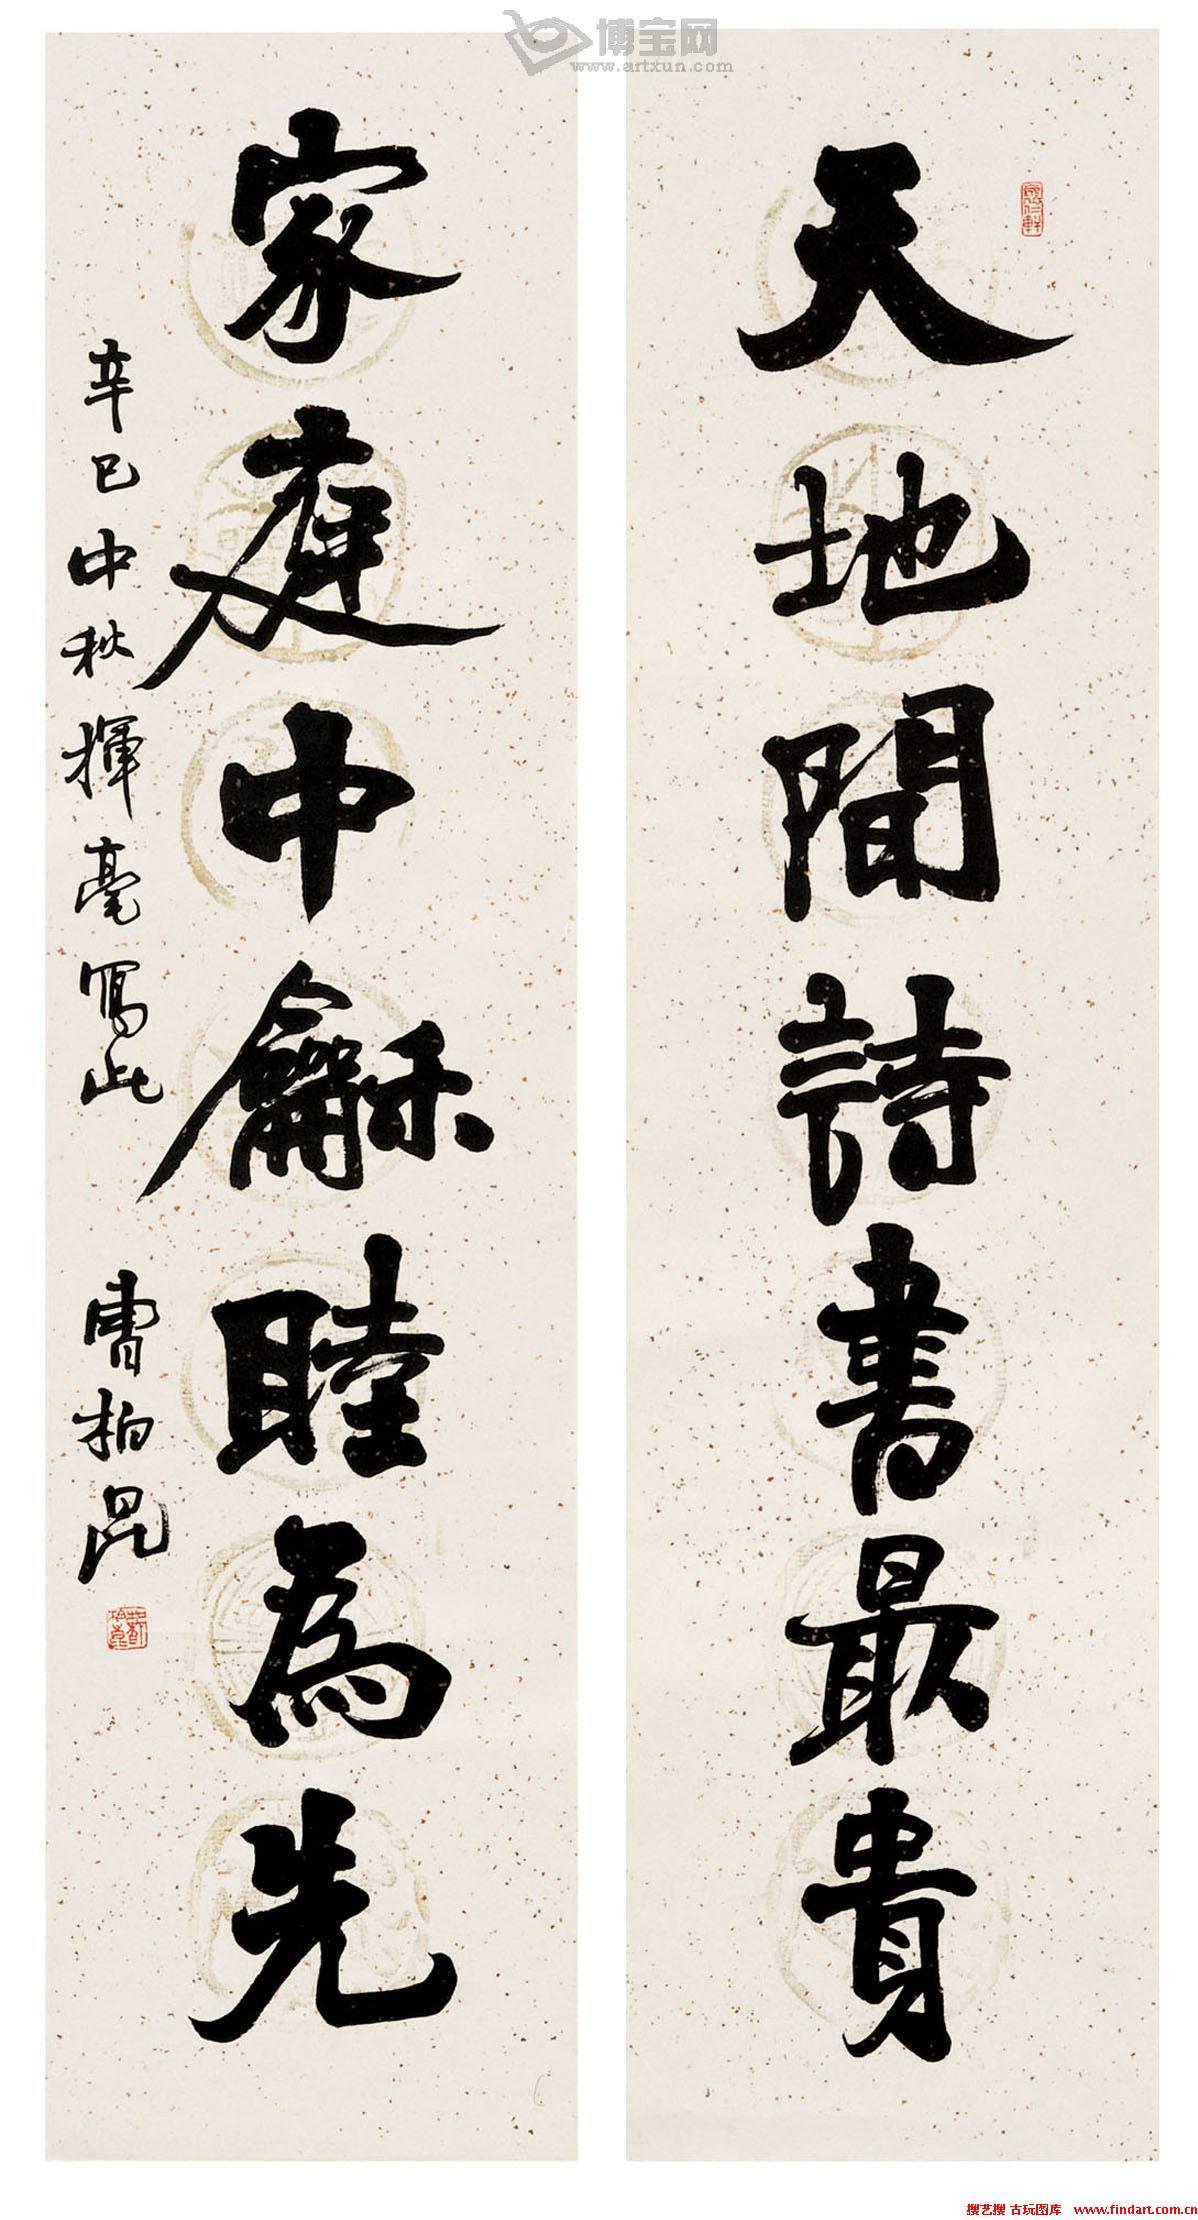 博宝网
www.artxun.com
天地間詩書最貴
家庭中龢睦為先
辛巳中秋揮毫寫此 曹柏昆
搜艺搜 古玩图库 www.findart.com.cn